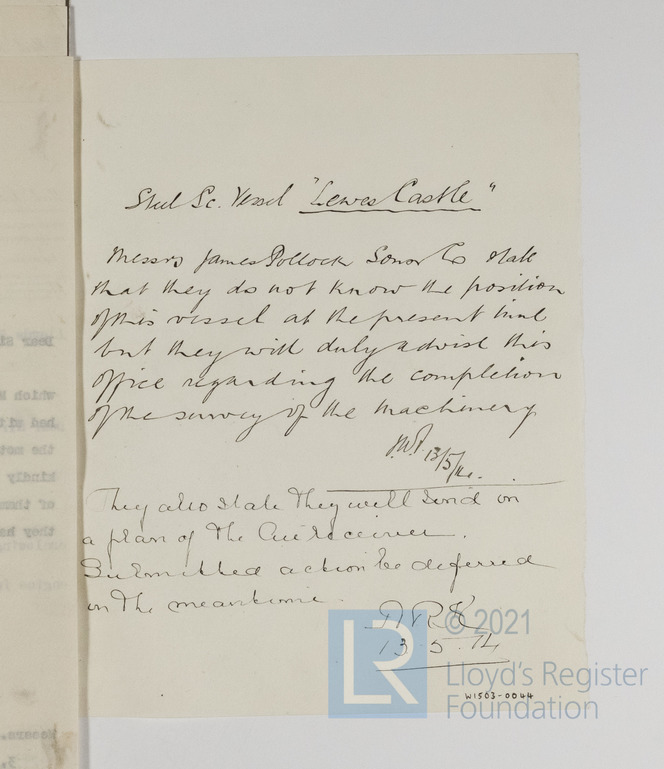 Steel Sc. Vessel "Lewes Castle"
Messrs James Pollock Sons & Co state
that they do not know the position
of this vessel at the present time
but they will duly advise this
office regarding the completion
of the survey of the machinery
13/5/14.
They also state they will send in
a plan of the Air Receiver.
Submitted action be deferred
in the meantime.
13.5.14
© 2021
LR
Lloyd's Register
Foundation
W1503-0044
Dear Si
which
had
the mot
kindly
of them
they ha
Messrs.